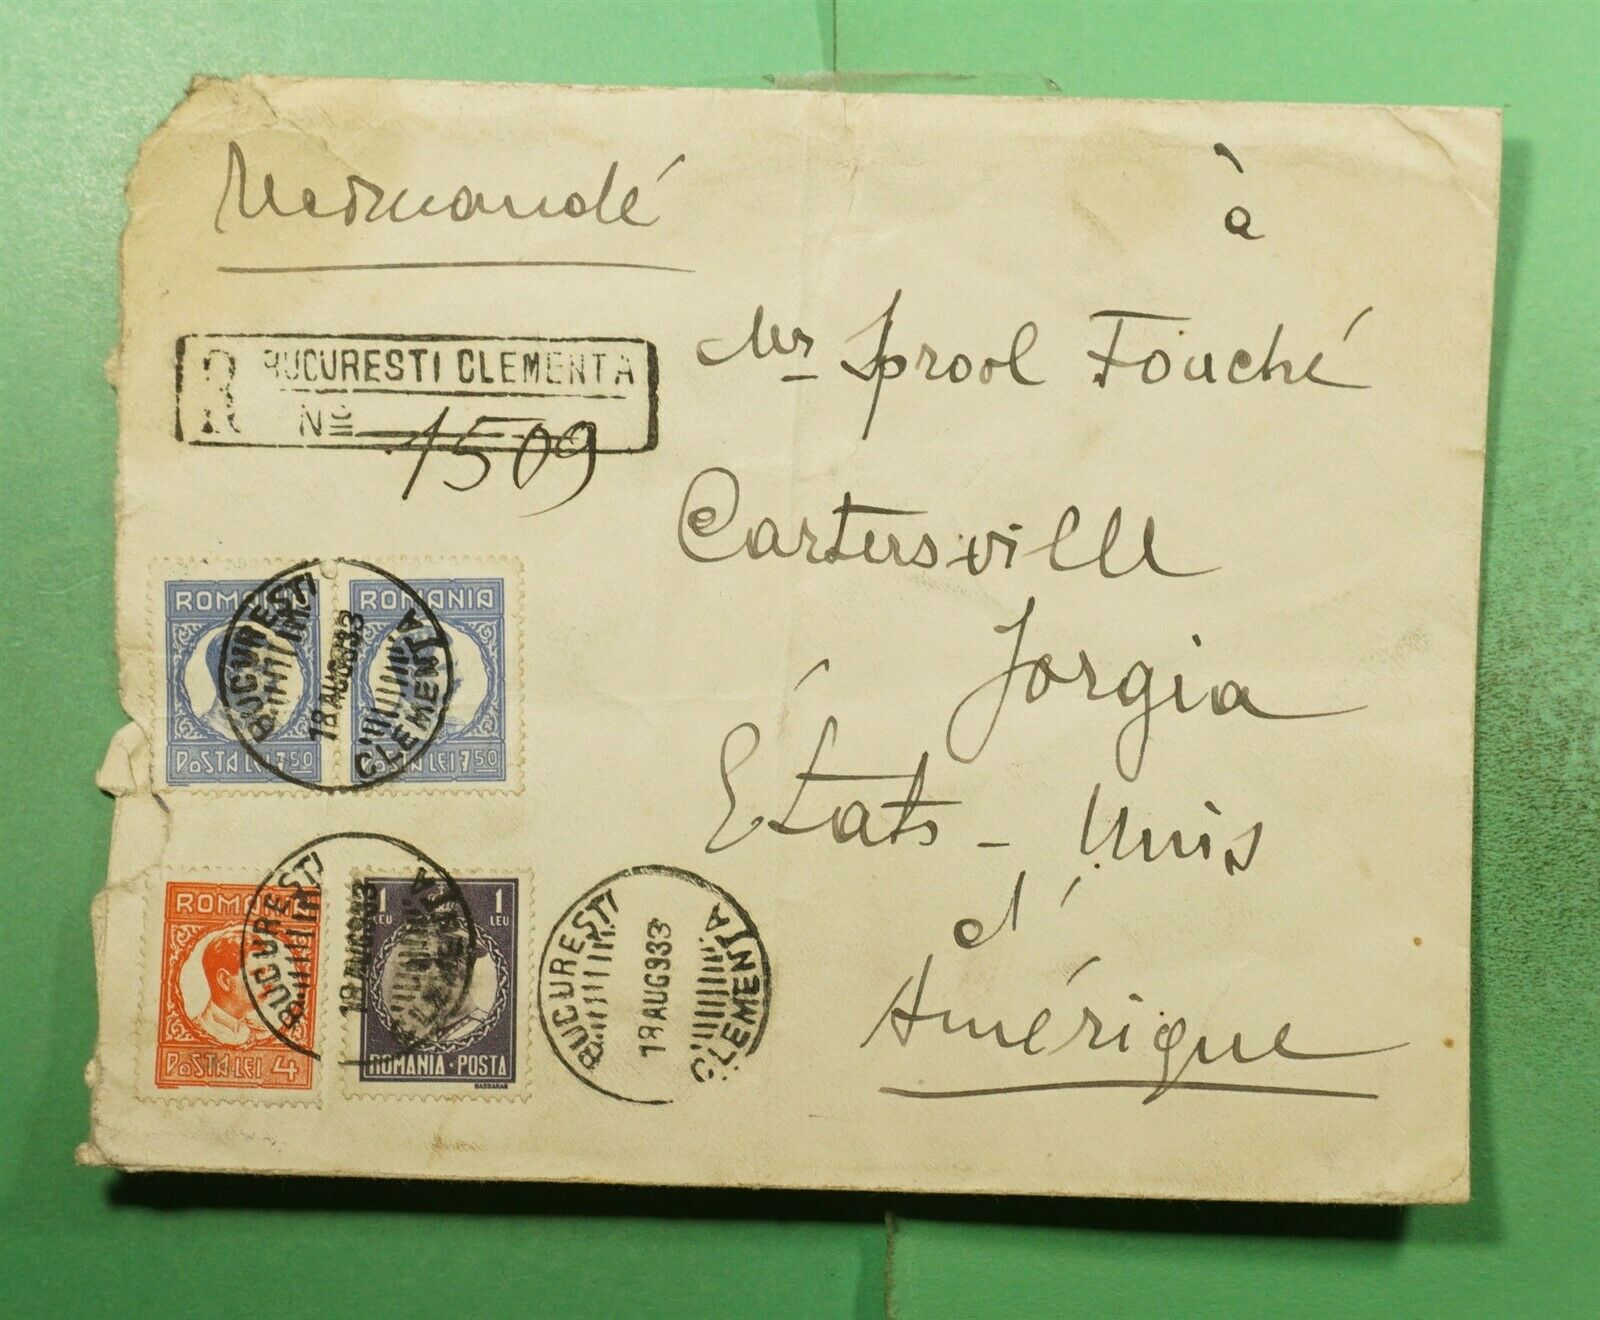 Recomandé
à
Mr Sprool Fouché
R BUCURESTI CLEMENTA
No 1509
Cartersville
Jorgia
États-Unis
d'
Amérique
ROMANIA ROMANIA
POSTA LEI 7 50 POSTA LEI 7 50
BUCURESTI 18 AUG 933 CLEMENTA
ROMANIA
POSTA LEI 4
1 LEU 1 LEU
ROMANIA · POSTA
BUCURESTI 18 AUG 933 CLEMENTA
BUCURESTI 18 AUG 933 CLEMENTA